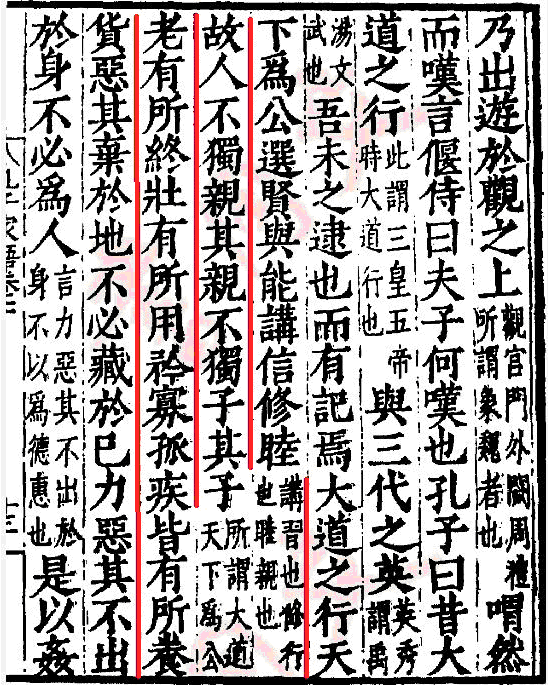 乃出遊於觀之上觀宮門外闕周禮所謂象魏者也喟然
而嘆言偃侍曰夫子何嘆也孔子曰昔大
道之行此謂三皇五帝時大道行也與三代之英英秀謂禹
湯文武也吾未之逮也而有記焉大道之行天
下爲公選賢與能講信修睦講習也修行也睦親也
故人不獨親其親不獨子其子所謂大道天下爲公
老有所終壯有所用矜寡孤疾皆有所養
貨惡其棄於地不必藏於己力惡其不出
於身不必爲人言力惡其不出於身不以爲德惠也是以姦